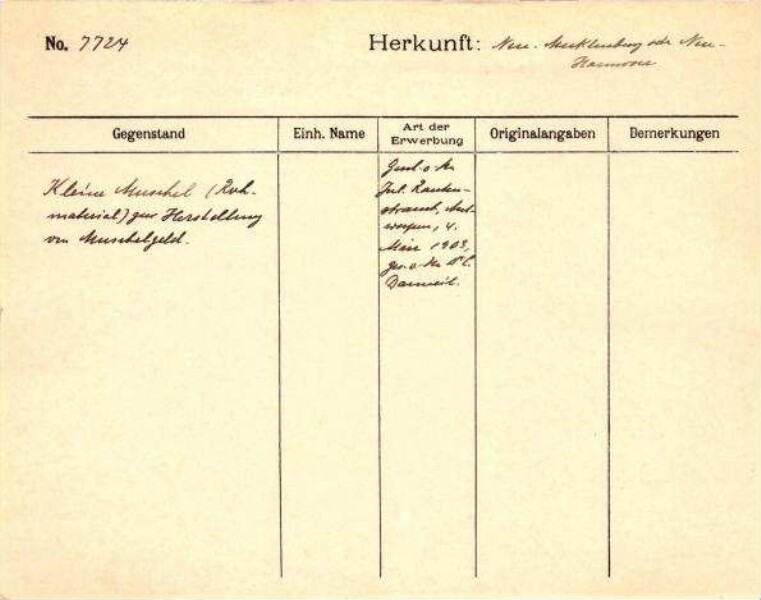 No. 7724
Herkunft: Neu-Mecklenburg oder Neu-
Hannover
Gegenstand
Einh. Name
Art der
Erwerbung
Originalangaben
Bemerkungen
Kleine Muschel (Roh-
material) zur Herstellung
von Muschelgeld.
Jul. Rauten-
strauch, Ant-
werpen, 4.
März 1903,